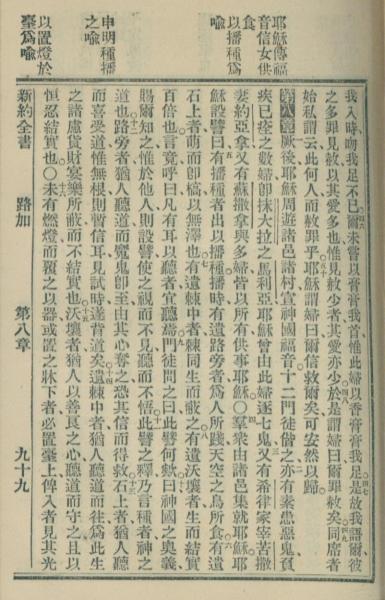 耶穌傳福
音信女供
食
以播種爲
喻
申明種播
之喻
以置燈於
臺爲喻
我入時吻我足不已爾未嘗以膏膏我首惟此婦以香膏膏我足是故我語爾彼
之多罪見赦以其愛多也惟見赦少者其愛亦少於是謂婦曰爾罪赦矣同席者
始私謂云此何人而赦罪乎耶穌謂婦曰爾信救爾矣可安然以歸
第八章厥後耶穌周遊諸邑諸村宣神國福音十二門徒偕之亦有素患惡鬼負
疾已痊之數婦即抹大拉之馬利亞耶穌曾由此婦逐七鬼又有希律家宰苦撒
妻約亞拿又有蘇撒拿與多婦皆以所有供事耶穌○羣衆由諸邑集就耶穌耶
穌設譬曰有播種者出以播種播時有遺路旁者爲人所踐天空之鳥所食有遺
石上者萌而即槁以無澤也有遺棘中者棘同生而蔽之有遺沃壤者生而結實
百倍也言竟呼曰凡有耳以聽者宜聽焉門徒問之曰此譬何歟曰神國之奧義
賜爾知之惟於他人則設譬使之視而不見聽而不悟此譬之釋乃言種者神之
道也路旁者猶人聽道而魔鬼即至由其心奪之恐其信而得救石上者猶人聽
而喜受道惟無根則暫信耳見試時遂背道矣遺棘中者猶人聽道而往爲此生
之諸慮貨財宴樂所蔽而不結實也沃壤者猶人以善良之心聽道而守之且以
恒忍結實也○未有燃燈而覆之以器或置之牀下者必置臺上俾入者見其光
新約全書 路加 第八章 九十九